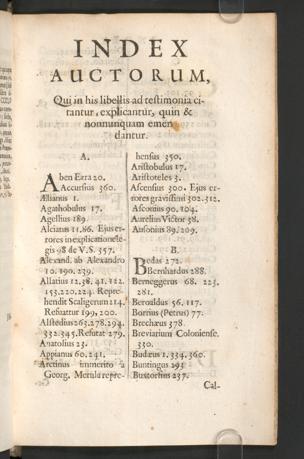 INDEX
AUCTORUM,
Qui in his libellis ad testimonia ci-
tantur, explicantur, quin &
nonnunquam emen
dantur.
A.
Aben Erra 20.
Accursius 360.
Ælianus 1.
Agathobulus 17.
Agellius 189.
Alciatus 11.86. Ejus er-
rores in explicatione le-
gis 98 de V.S. 357.
Alexand. ab Alexandro
10. 190. 239.
Allatius 12.38. 41. 112.
153.220.224. Repre-
hendit Scaligerum 214.
Refutatur 199, 200.
Alstedius 263.278.294.
332.345. Refutat 279.
Anatolius 23.
Appianus 60. 241.
Arctinus immerito à
Georg. Merula repre-
hensus 350.
Aristobulus 17.
Aristoteles 3.
Ascensius 300. Ejus er-
rores gravissimi 302.312.
Asconius 90. 104.
Aurelius Victor 38.
Ausonius 89. 209.
B.
Bedas 272.
Bernhardus 288.
Berneggerus 68. 223.
281.
Beroaldus 56. 117.
Borrius (Petrus) 77.
Brechæus 378.
Breviarium Coloniense.
330.
Budæus 1. 334. 360.
Buntingus 291
Buxtorfius 237.
Cal-